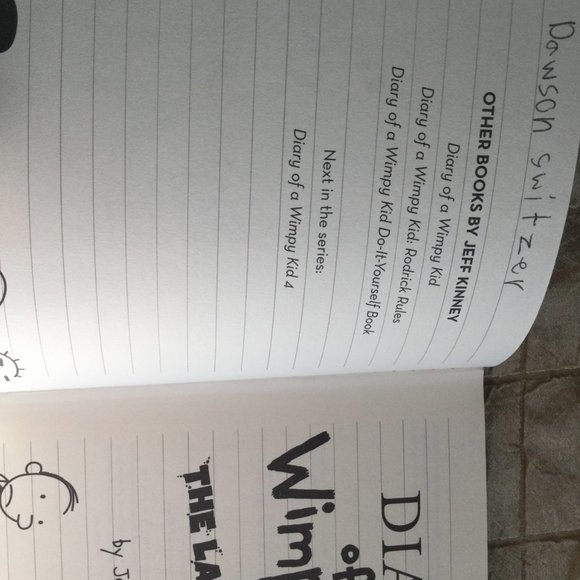 Dawson switzer
OTHER BOOKS BY JEFF KINNEY
Diary of a Wimpy Kid
Diary of a Wimpy Kid: Rodrick Rules
Diary of a Wimpy Kid Do-It-Yourself Book
Next in the series:
Diary of a Wimpy Kid 4
DIA
of
Wimp
THE LA
by Je